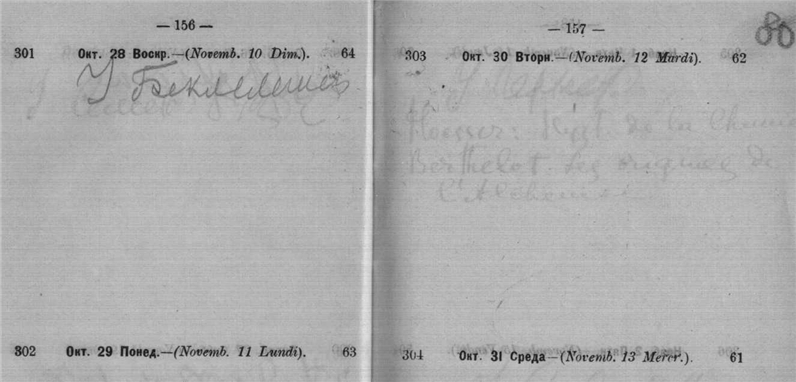 — 156 —
301 Окт. 28 Воскр.—(Novemb. 10 Dim.). 64
У Беклемишев
302 Окт. 29 Понед.—(Novemb. 11 Lundi). 63
— 157 —
80
303 Окт. 30 Вторн.—(Novemb. 12 Mardi). 62
Hoeffer: Hyst de la Chimie
Berthelot Les origines de
l'Alchemie
304 Окт. 31 Среда—(Novemb. 13 Mercr.). 61